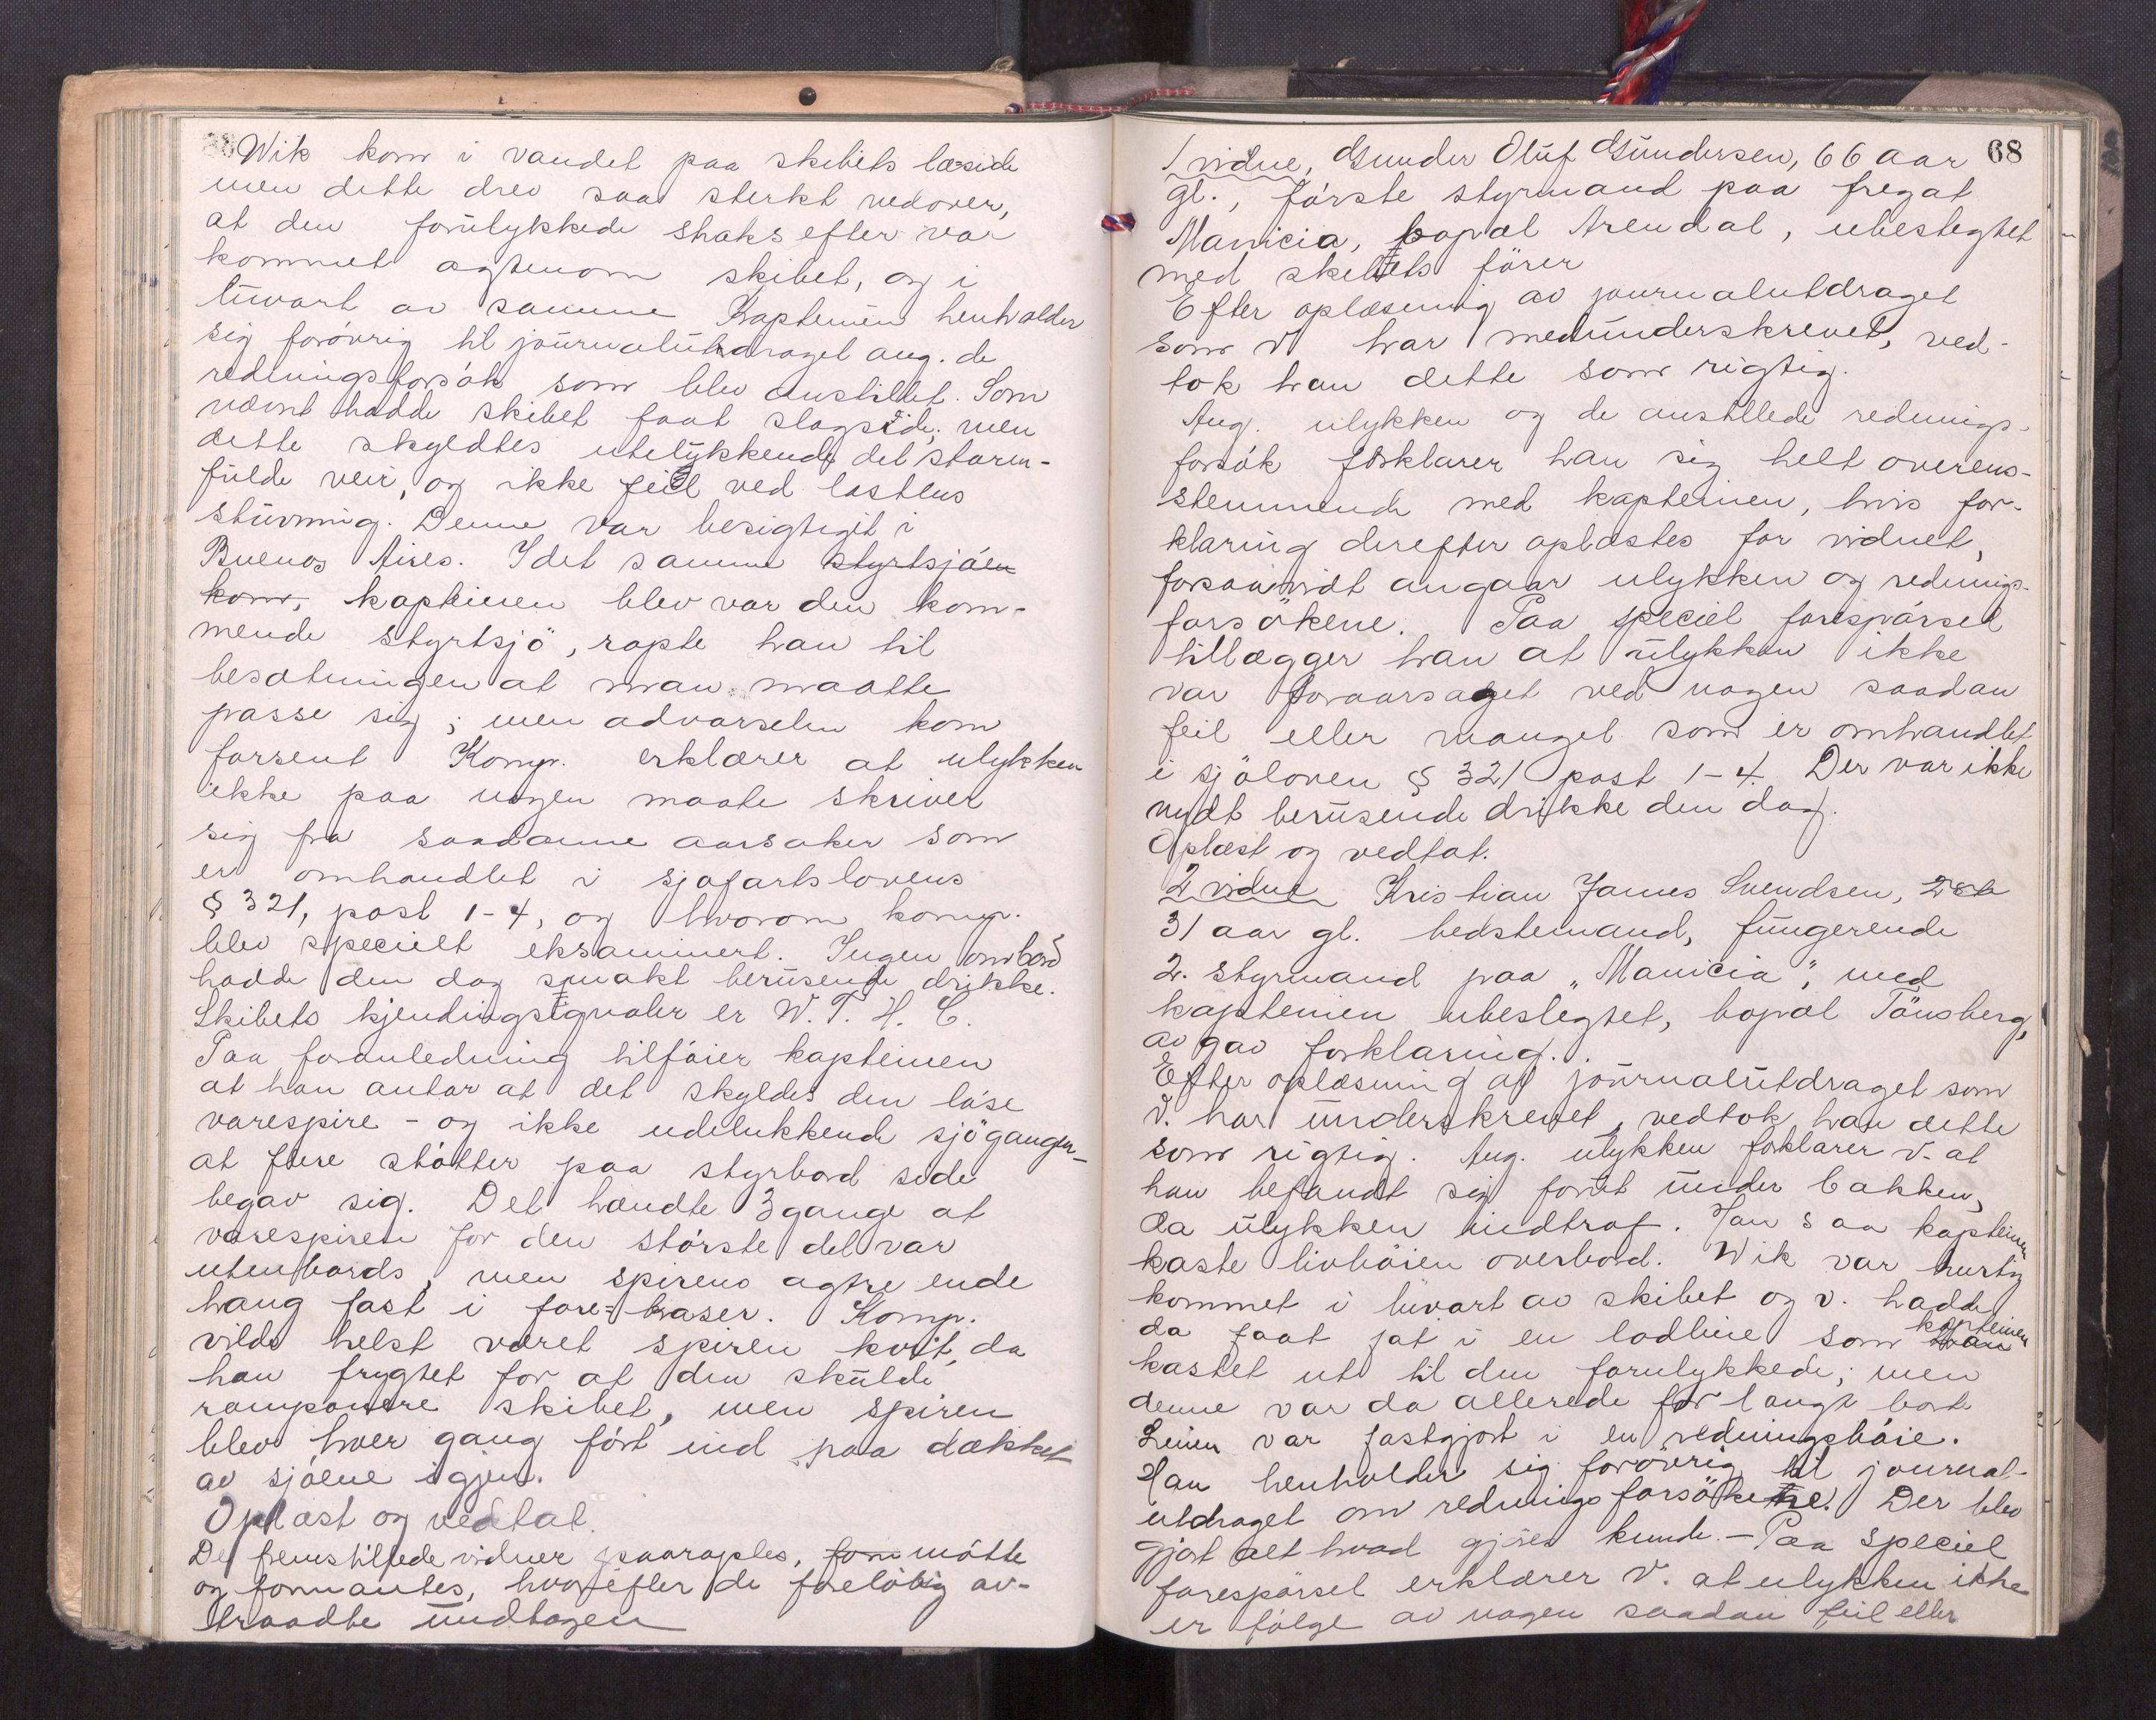 Wik kom i vandet paa skibets læside
men dette drev saa sterkt nedover,
at den forulykkede straks efter var
kommet agtenom skibet, og i
luvart av samme Kapteinen henholder
sig forøvrig til journalutdraget ang. de
redningsforsøk som blev anstillet. Som
nævnt hadde skibet faat slagside, men
dette skyldtes utelukkende det storm-
fulde veir, og ikke feil ved lastens
stuvning. Denne var besigtiget i
Buenos Aires. I det samme styrtsjøen
kom, kapteinen blev var den kom-
mende styrtsjø, ropte han til
besætningen at man maatte
passe sig; men advarselen kom
forsent Komp. erklærer at ulykken
ikke paa nogen maate skriver
sig fra saadanne aarsaker som
er omhandlet i sjøfartslovens
§ 321, post 1-4, og hvorom komp.
blev specielt eksaminert. Ingen ombord
hadde den dag smakt berusende drikke.
Skibets kjendingssignaler er W. T. H. C.
Paa foranledning tilføier kapteinen
at han antar at det skyldes den løse
varespire - og ikke udelukkende sjøgangen -
at flere støtter paa styrbord side
begav sig. Det hændte 3 gange at
varespiren for den største del var
utenbords, men spirens agtre ende
hang fast i fore-braser. Komp.
vilde helst været spiren kvit, da
han frygtet for at den skulde
ramponere skibet, men spiren
blev hver gang ført ind paa dækket
av sjøene igjen.
Oplæst og vedtat.
De fremstillede vidner paaroptes, som møtte
og formantes, hvorefter de foreløbig av-
traadte undtagen
68
1 vidne, Gunder Oluf Gundersen, 66 aar
gl., første styrmand paa fregat
Manicia, bopæl Arendal, ubeslegtet
med skibets fører
Efter oplæsning av journalutdraget
som v. har medunderskrevet, ved-
tok han dette som rigtig.
Ang. ulykken og de anstillede rednings-
forsøk forklarer han sig helt overens-
stemmende med kapteinen, hvis for-
klaring derefter oplæstes for vidnet,
forsaavidt angaar ulykken og rednings-
forsökene. Paa speciel forespørsel
tillægger han at ulykken ikke
var foraarsaget ved nogen saadan
feil eller mangel som er omhandlet
i sjöloven § 321 post 1-4. Der var ikke
nydt berusende drikke den dag.
Oplæst og vedtat.
2 vidne Kristian James Svendsen, 28 a
31 aar gl. bedstemand, fungerende
2. styrmand paa „Manicia", med
kapteinen ubeslegtet, bopæl Tönsberg,
avgav forklaring.
Efter oplæsning af journalutdraget som
v. har underskrevet, vedtok han dette
som rigtig. Ang. ulykken forklarer v. at
han befandt sig forut under bakken,
da ulykken indtraf. Han saa kapteinen
kaste livbøien overbord. Wik var hurtig
kommet i luvart av skibet og v. hadde
da faat fat i en lodline som han kapteinen
kastet ut til den forulykkede; men
denne var da allerede for langt borte
Linen var fastgjort i en redningsbøie.
Han henholder sig forøvrig til journal-
utdraget om redningsforsøkene. Der blev
gjort alt hvad gjøres kunde. - Paa speciel
forespørsel erklærer v. at ulykken ikke
er følge av nogen saadan feil eller